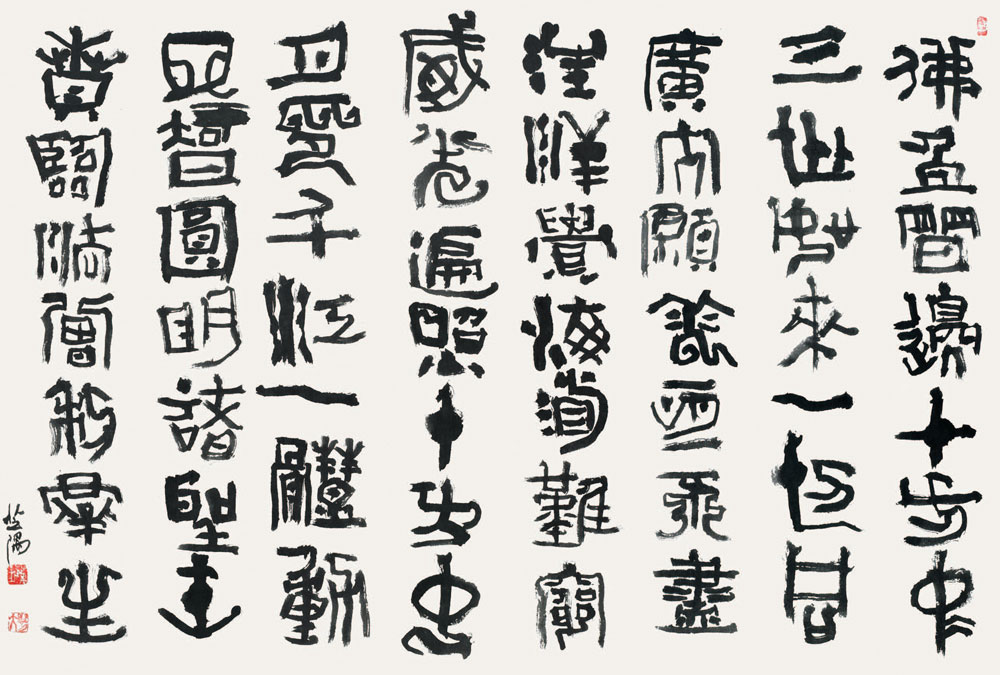 佛身普邊十方中
三世如來一切同
廣大願雲恒不盡
汪洋覺海渺難窮
威光遍照十方中
月印千江一體動
四智圓明諸聖士
賁臨法會利群生